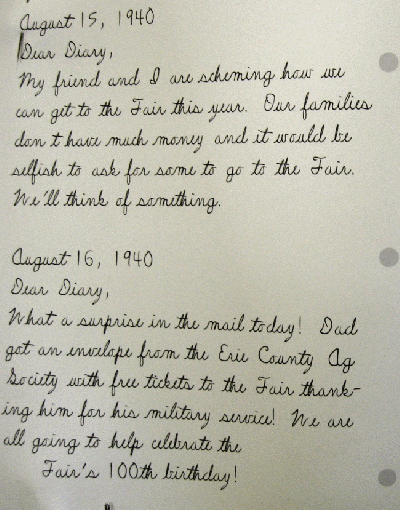 August 15, 1940
Dear Diary,
My friend and I are scheming how we
can get to the Fair this year. Our families
don't have much money and it would be
selfish to ask for some to go to the Fair.
We'll think of something.
August 16, 1940
Dear Diary,
What a surprise in the mail today! Dad
got an envelope from the Erie County Ag
Society with free tickets to the Fair thank-
ing him for his military service! We are
all going to help celebrate the
Fair's 100th birthday!